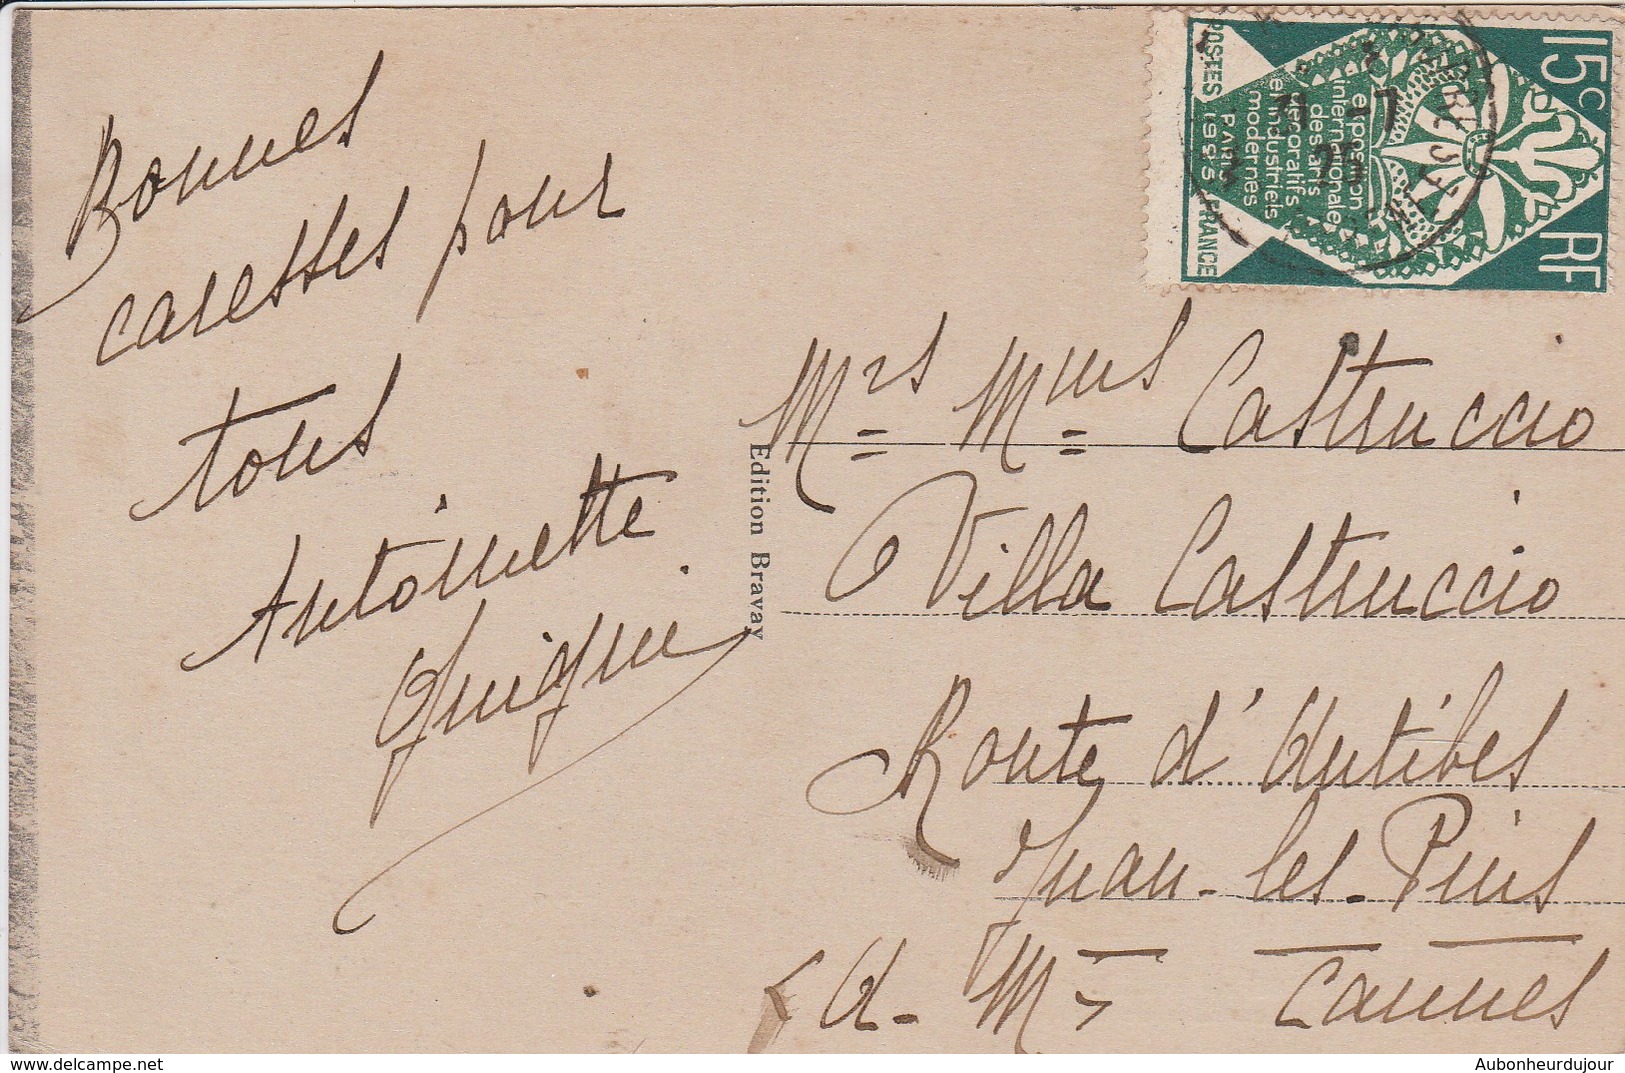 Bonnes
caresses pour
tous
Antoinette
Quiqui
Edition Bravay
15c
RF
POSTES FRANCE
exposition
internationale
des arts
décoratifs
et industriels
modernes
PARIS
1925
Mrs Mmes Castruccio
Villa Castruccio
Route d'Antibes
Juan-les-Pins
(A.-M.) Cannes
delcampe.net
Aubonheurdujour